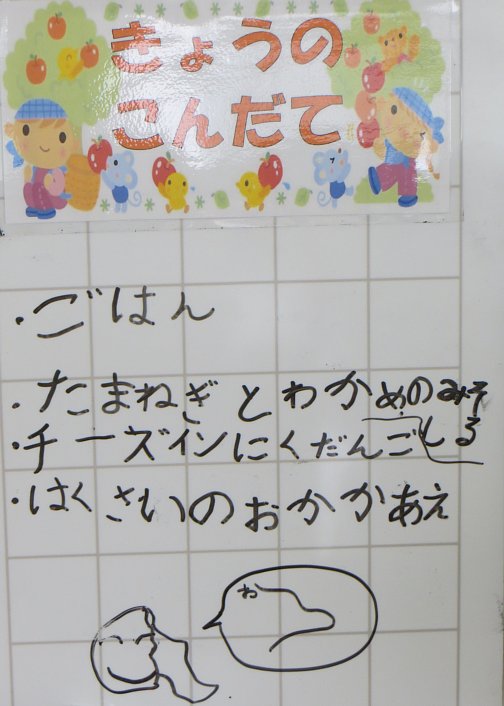 きょうの
こんだて
・ごはん
・たまねぎとわかめのみそ
しる
・チーズインにくだんご
・はくさいのおかかあえ